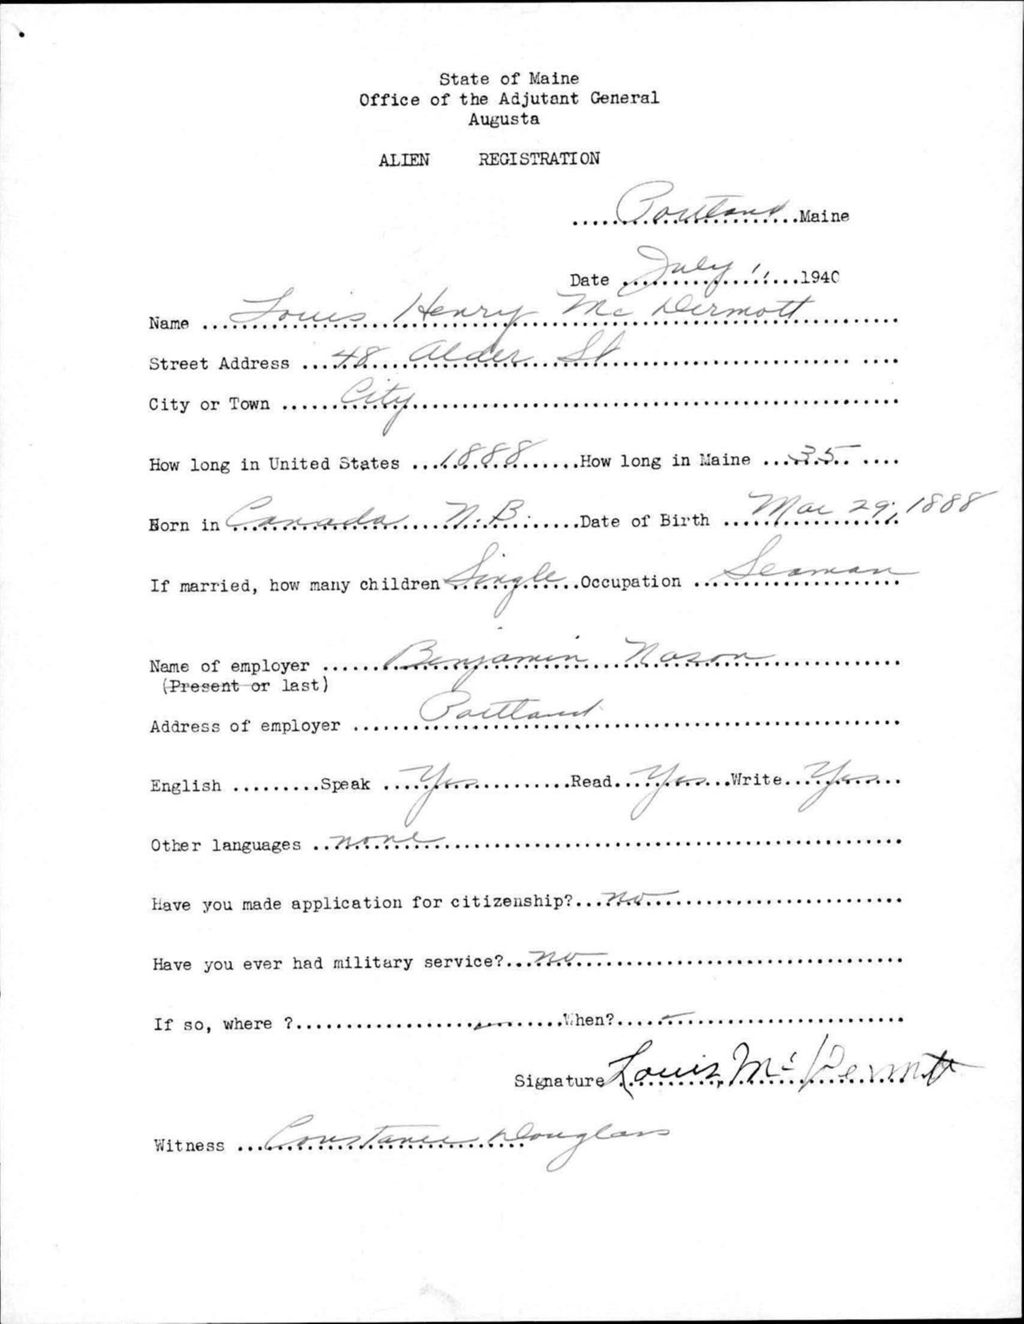 State of Maine
Office of the Adjutant General
Augusta
ALIEN REGISTRATION
Portland Maine
Date July 1, 1940
Name Louis Henry Mc Dermott
Street Address 48 Alder St
City or Town City
How long in United States 1888 How long in Maine 35
Born in Canada N.B. Date of Birth Mar 29, 1888
If married, how many children Single Occupation Seaman
Name of employer Benjamin Nason
(Present or last)
Address of employer Portland
English Speak Yes Read Yes Write Yes
Other languages none
Have you made application for citizenship? no
Have you ever had military service? no
If so, where ? - When? -
Signature Louis Mc Dermott
Witness Constance Douglass